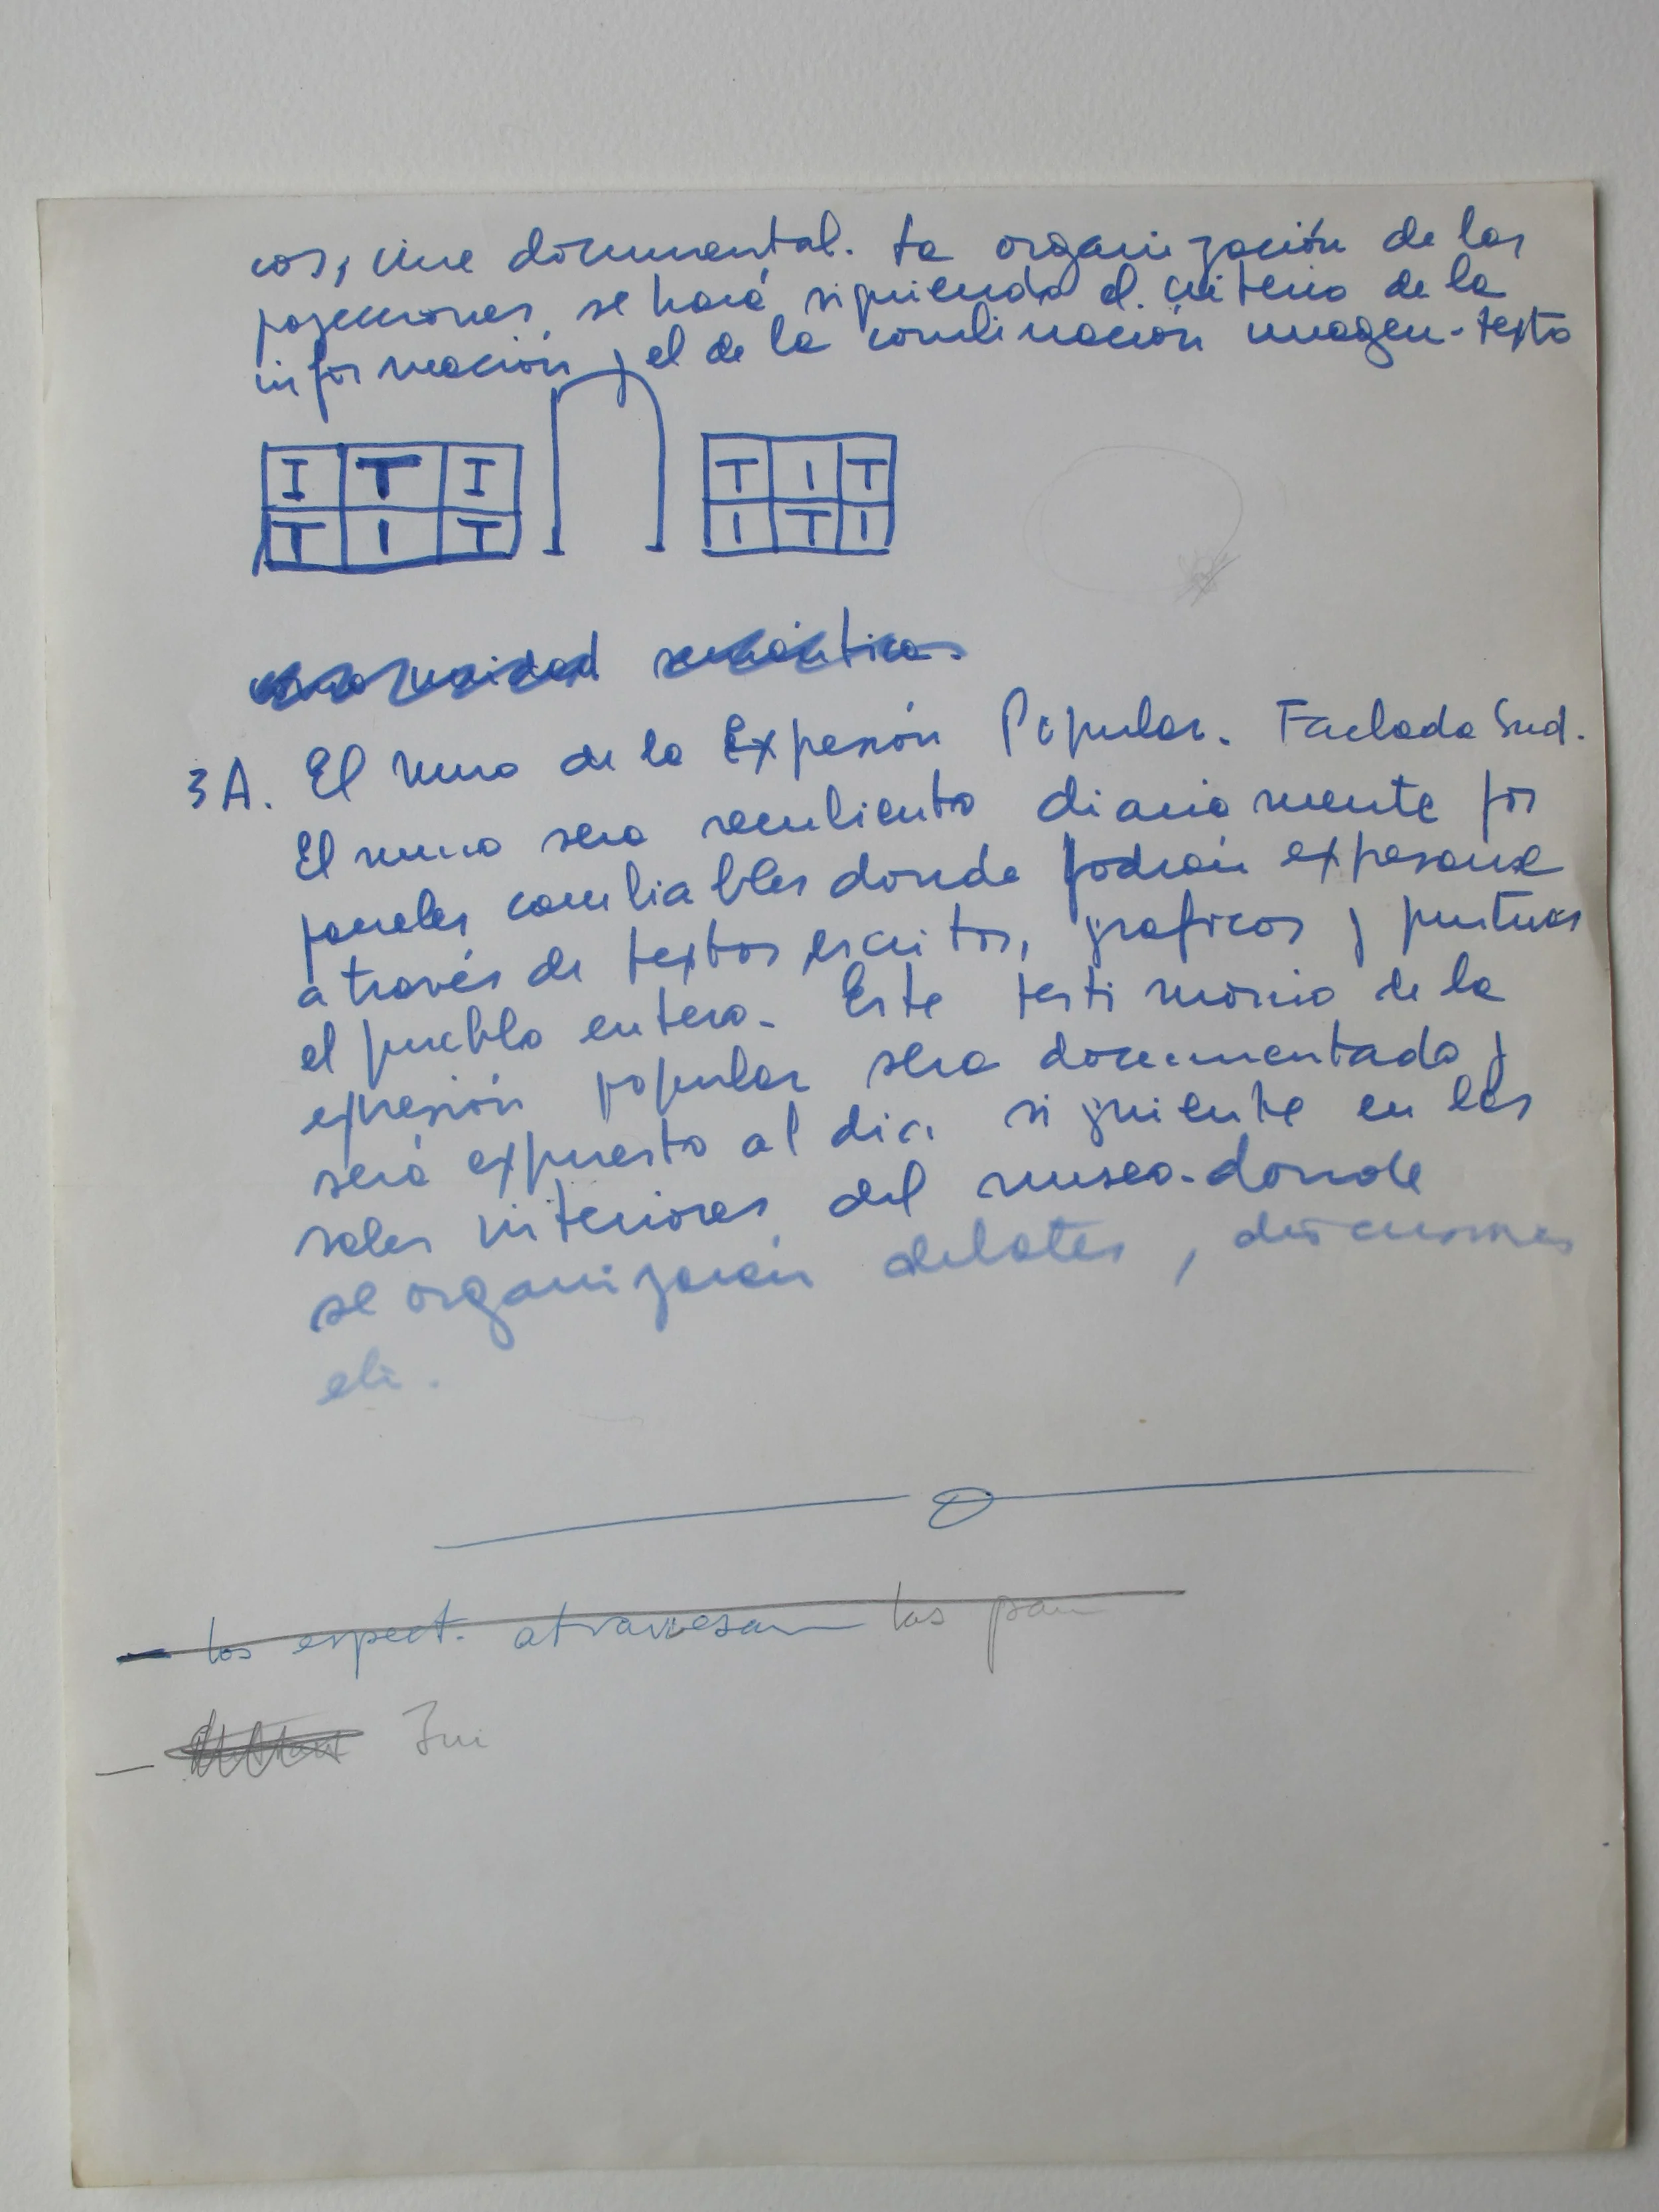 cos, cine documental. La organización de las
proyecciones se hará siguiendo el criterio de la
información y el de la combinación imagen-texto
I T I T I T
T I T I T I
como unidad semántica.
3A. El muro de la Expresión Popular. Fachada Sud.
El muro sera recubierto diariamente por
paneles cambiables donde podrán expresarse
a través de textos escritos, graficos y pinturas
el pueblo entero. Este testimonio de la
expresión popular sera documentado y
será expuesto al dia siguiente en las
salas interiores del museo. donde
se organizarán debates, discusiones
etc.
- los espect. atraviesan las pan
-